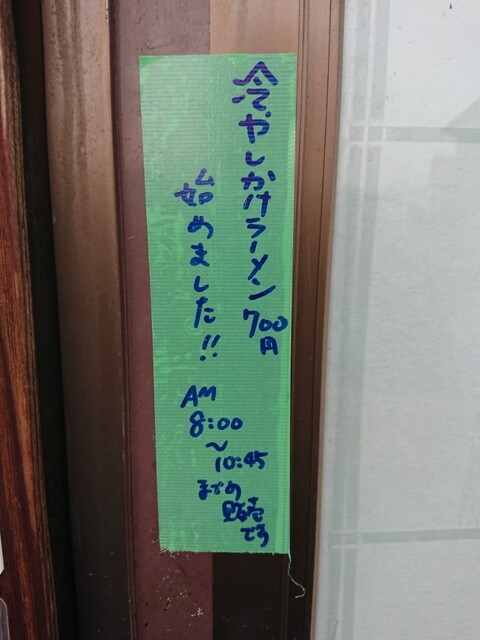 冷やしかけラーメン 700円
始めました!!
AM
8:00
〜
10:45
までの
販売
です